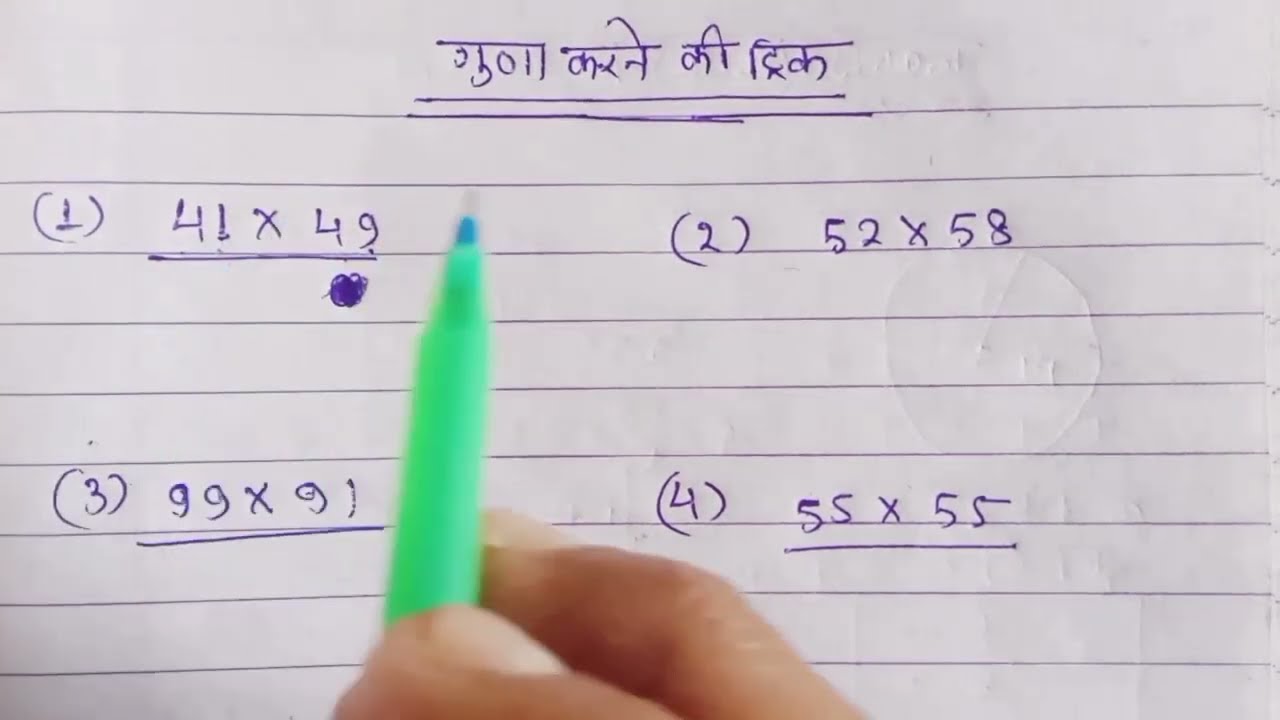 गुणा करने की ट्रिक
(1) 41 × 49
(2) 52 × 58
(3) 99 × 91
(4) 55 × 55